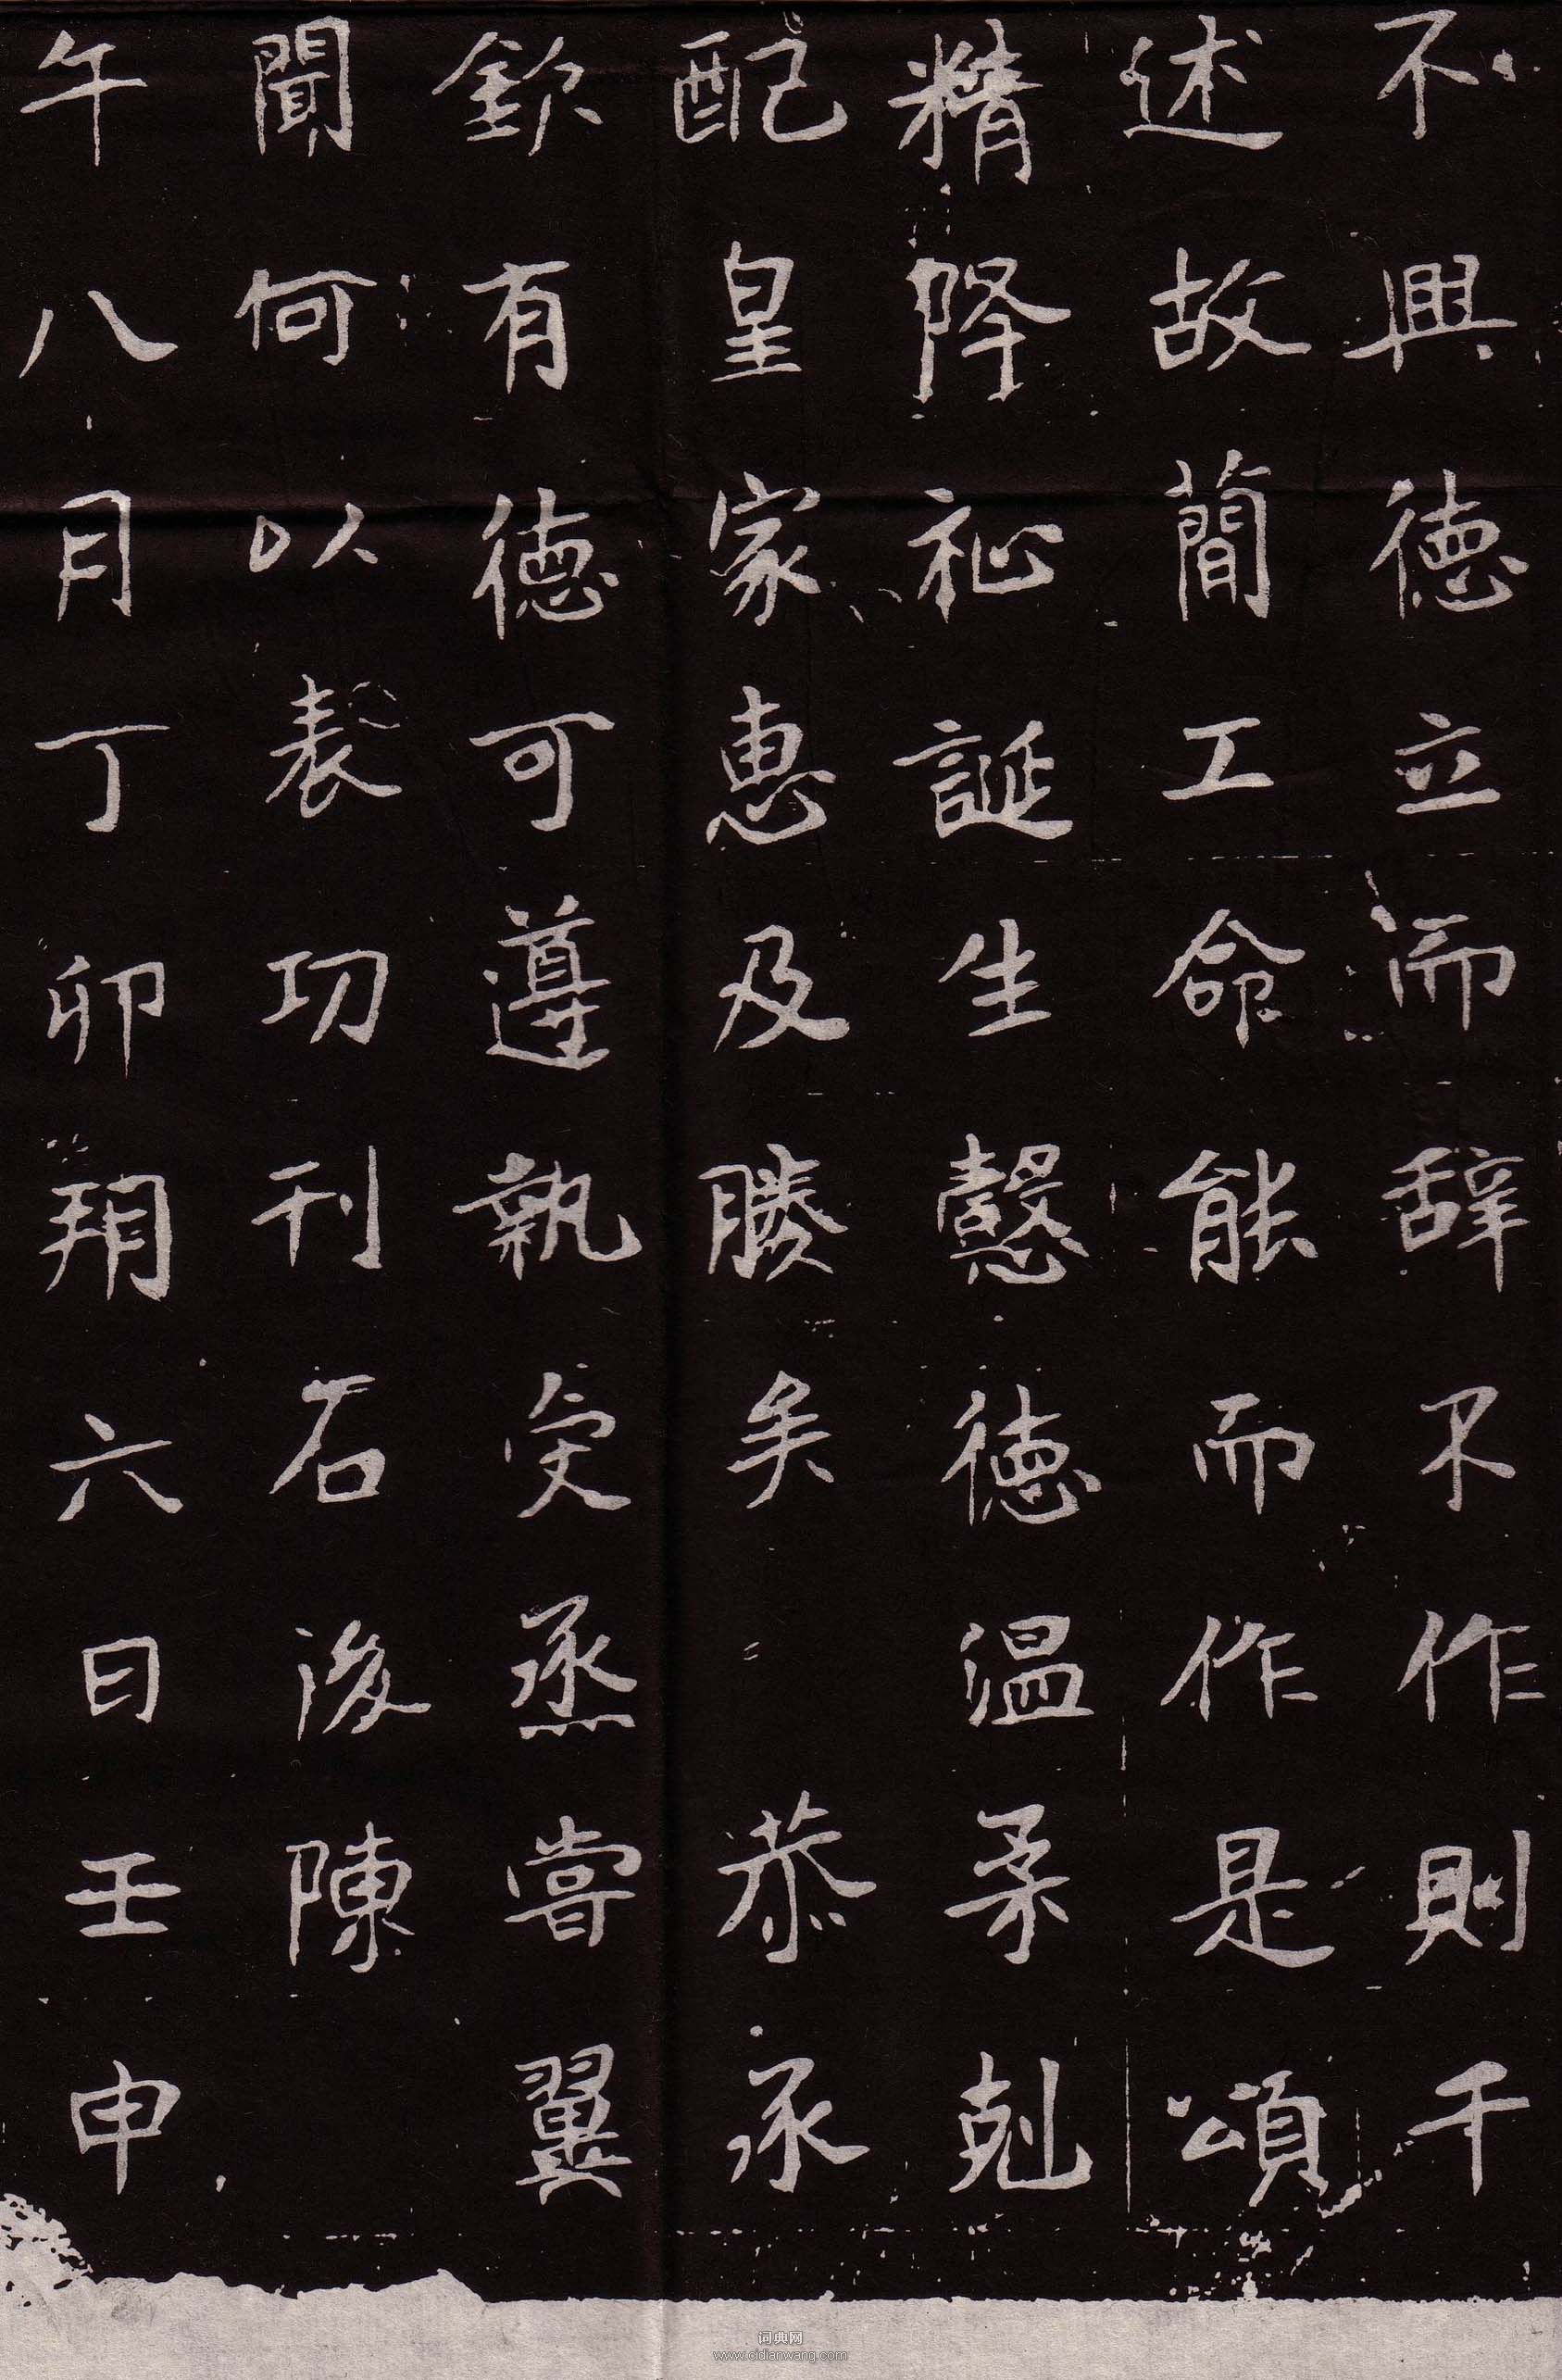 不興德立而辞不作則千
述故簡工命能而作是頌
精降祉誕生懿德温柔剋
配皇家惠及勝矣　恭承
欽有德可遵執受烝嘗翼
聞何以表功刊石後陳
午八月丁卯朔六日壬申
词典网
www.cidianwang.com